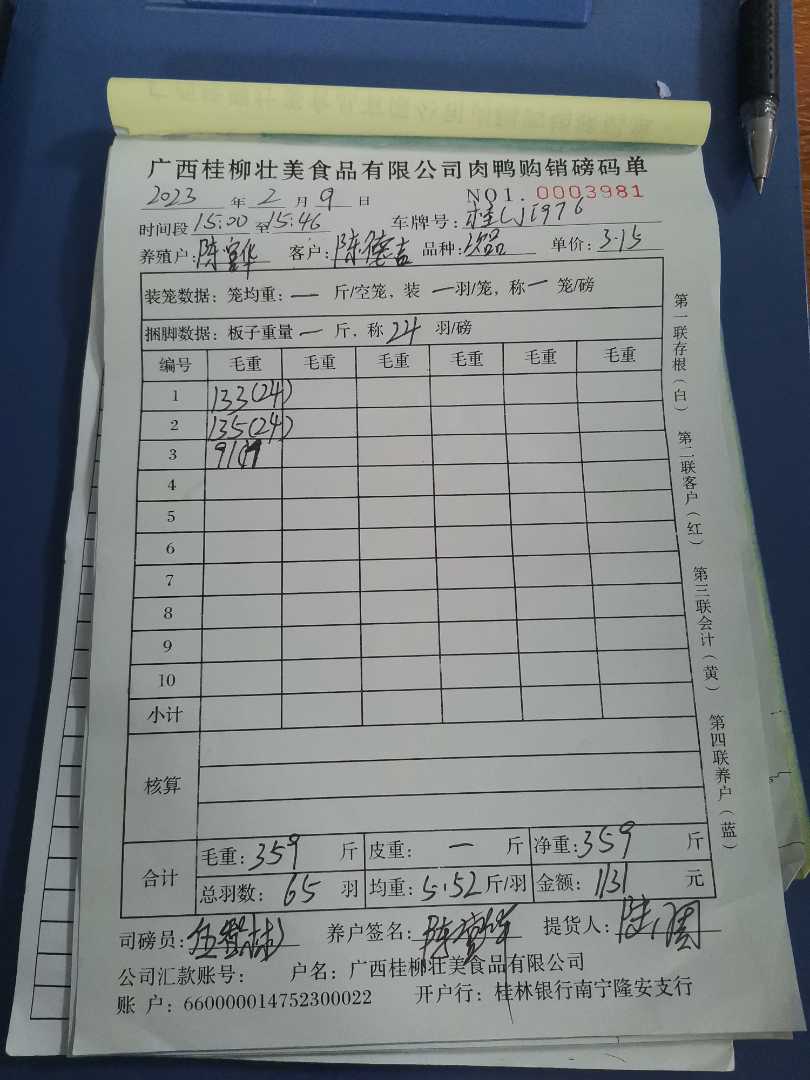 广西桂柳壮美食品有限公司肉鸭购销磅码单
2023 年 2 月 9 日 NO1. 0003981
时间段 15:00 至 15:46 车牌号:
养殖户: 陈 华 客户: 陈德吉 品种: 次品 单价: 3.15
装笼数据: 笼均重: — 斤/空笼, 装 — 羽/笼, 称 — 笼/磅
捆脚数据: 板子重量 — 斤, 称 24 羽/磅
编号 毛重 毛重 毛重 毛重 毛重 毛重
1 133(24)
2 135(24)
3 91
4
5
6
7
8
9
10
小计
核算
合计 毛重: 359 斤 皮重: — 斤 净重: 359 斤
总羽数: 65 羽 均重: 5.52 斤/羽 金额: 1131 元
司磅员: 养户签名: 提货人:
公司汇款账号: 户名: 广西桂柳壮美食品有限公司
账 户: 660000014752300022 开户行: 桂林银行南宁隆安支行
第一联存根(白) 第二联客户(红) 第三联会计(黄) 第四联养户(蓝)